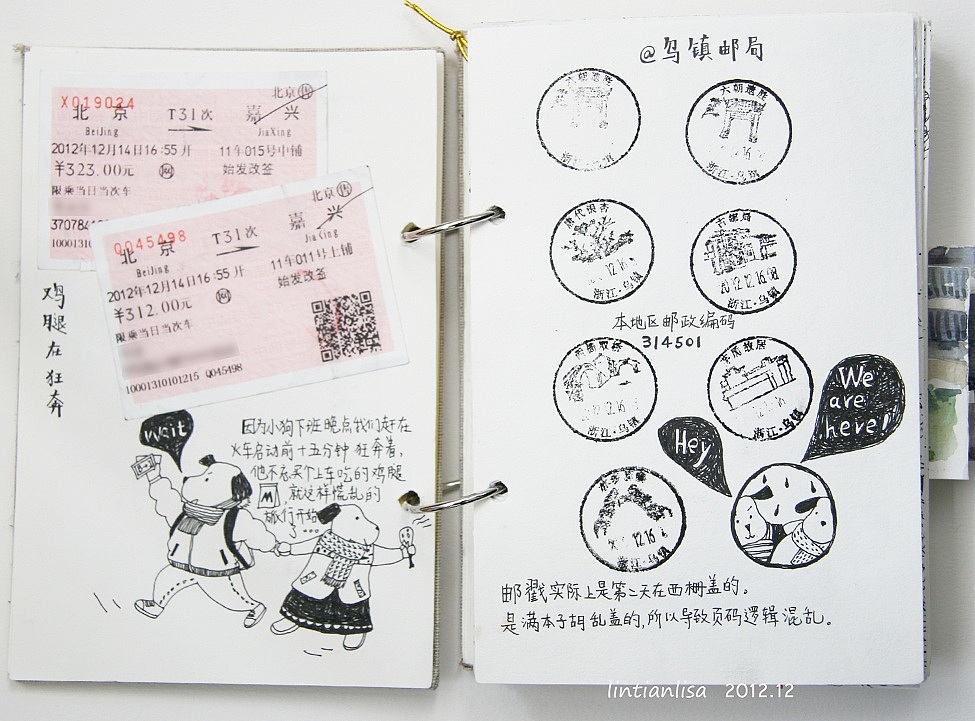 X019024
北京㊕
北京 T31次 嘉兴
BeiJing JiaXing
2012年12月14日16:55开 11车015号中铺
¥323.00元 ㊞ 始发改签
限乘当日当次车
Q045498
北京
北京 T31次 嘉兴
BeiJing JiaXing
2012年12月14日16:55开 11车011号上铺
¥312.00元 始发改签
限乘当日当次车
10001310101215 Q045498
鸡腿在狂奔
wait
因为小狗下班晚点我们赶在
火车启动前十五分钟狂奔着,
他不忘买个上车吃的鸡腿
M,就这样慌乱的
旅行开始...
@乌镇邮局
六朝遗胜
浙江·乌镇
六朝遗胜
浙江·乌镇
唐代银杏
浙江·乌镇
2012.12.16
浙江·乌镇
本地区邮政编码
314501
茅盾故居
浙江·乌镇
浙江·乌镇
Hey
We
are
here!
邮戳实际上是第二天在西栅盖的。
是满本子胡乱盖的,所以导致页码逻辑混乱。
lintianlisa 2012.12